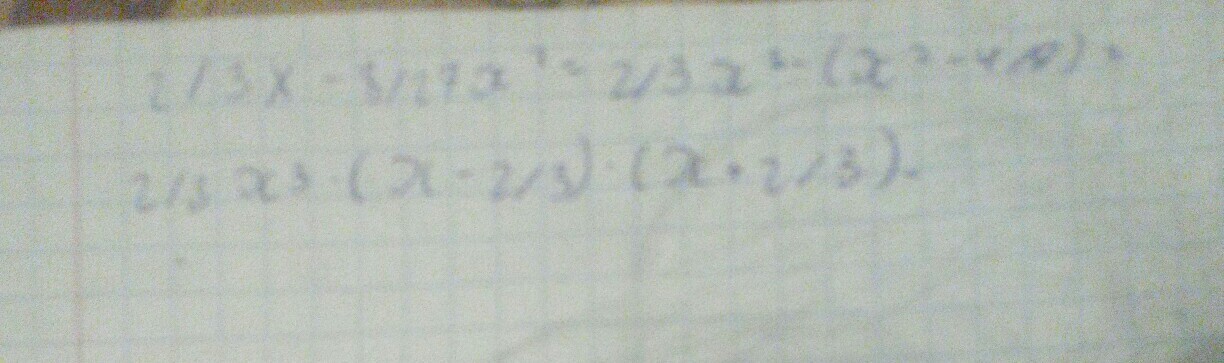 2/3x - 8/27x² = 2/3x² · (x² - 4/9) =
2/3x³ · (x - 2/3) · (x + 2/3).